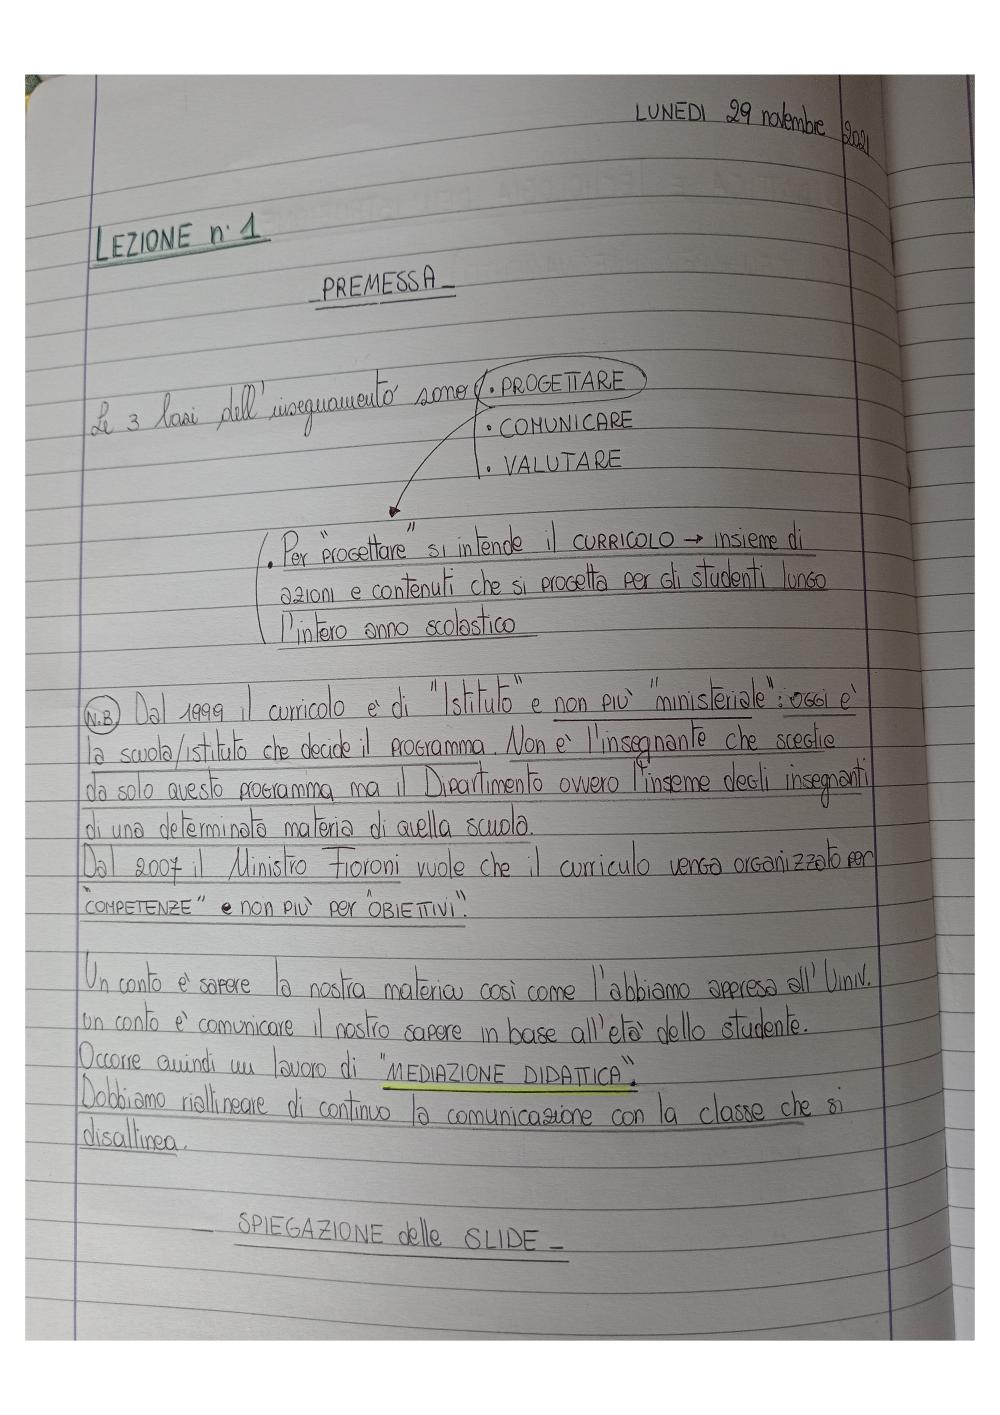 LUNEDI 29 novembre 2021
LEZIONE n. 1
PREMESSA
Le 3 fasi dell'insegnamento sono
• PROGETTARE
• COMUNICARE
• VALUTARE
• Per "progettare" si intende il CURRICOLO → insieme di
azioni e contenuti che si progetta per gli studenti lungo
l'intero anno scolastico
N.B. Dal 1999 il curricolo è di "Istituto" e non più "ministeriale": oggi è
la scuola/istituto che decide il programma. Non è l'insegnante che sceglie
da solo questo programma ma il Dipartimento ovvero l'inseme degli insegnanti
di una determinata materia di quella scuola.
Dal 2007 il Ministro Fioroni vuole che il curriculo venga organizzato per
"COMPETENZE" e non più per "OBIETTIVI".
Un conto è sapere la nostra materia così come l'abbiamo appresa all'Univ.
un conto è comunicare il nostro sapere in base all'età dello studente.
Occorre quindi un lavoro di "MEDIAZIONE DIDATTICA".
Dobbiamo riallineare di continuo la comunicazione con la classe che si
disallinea.
SPIEGAZIONE delle SLIDE